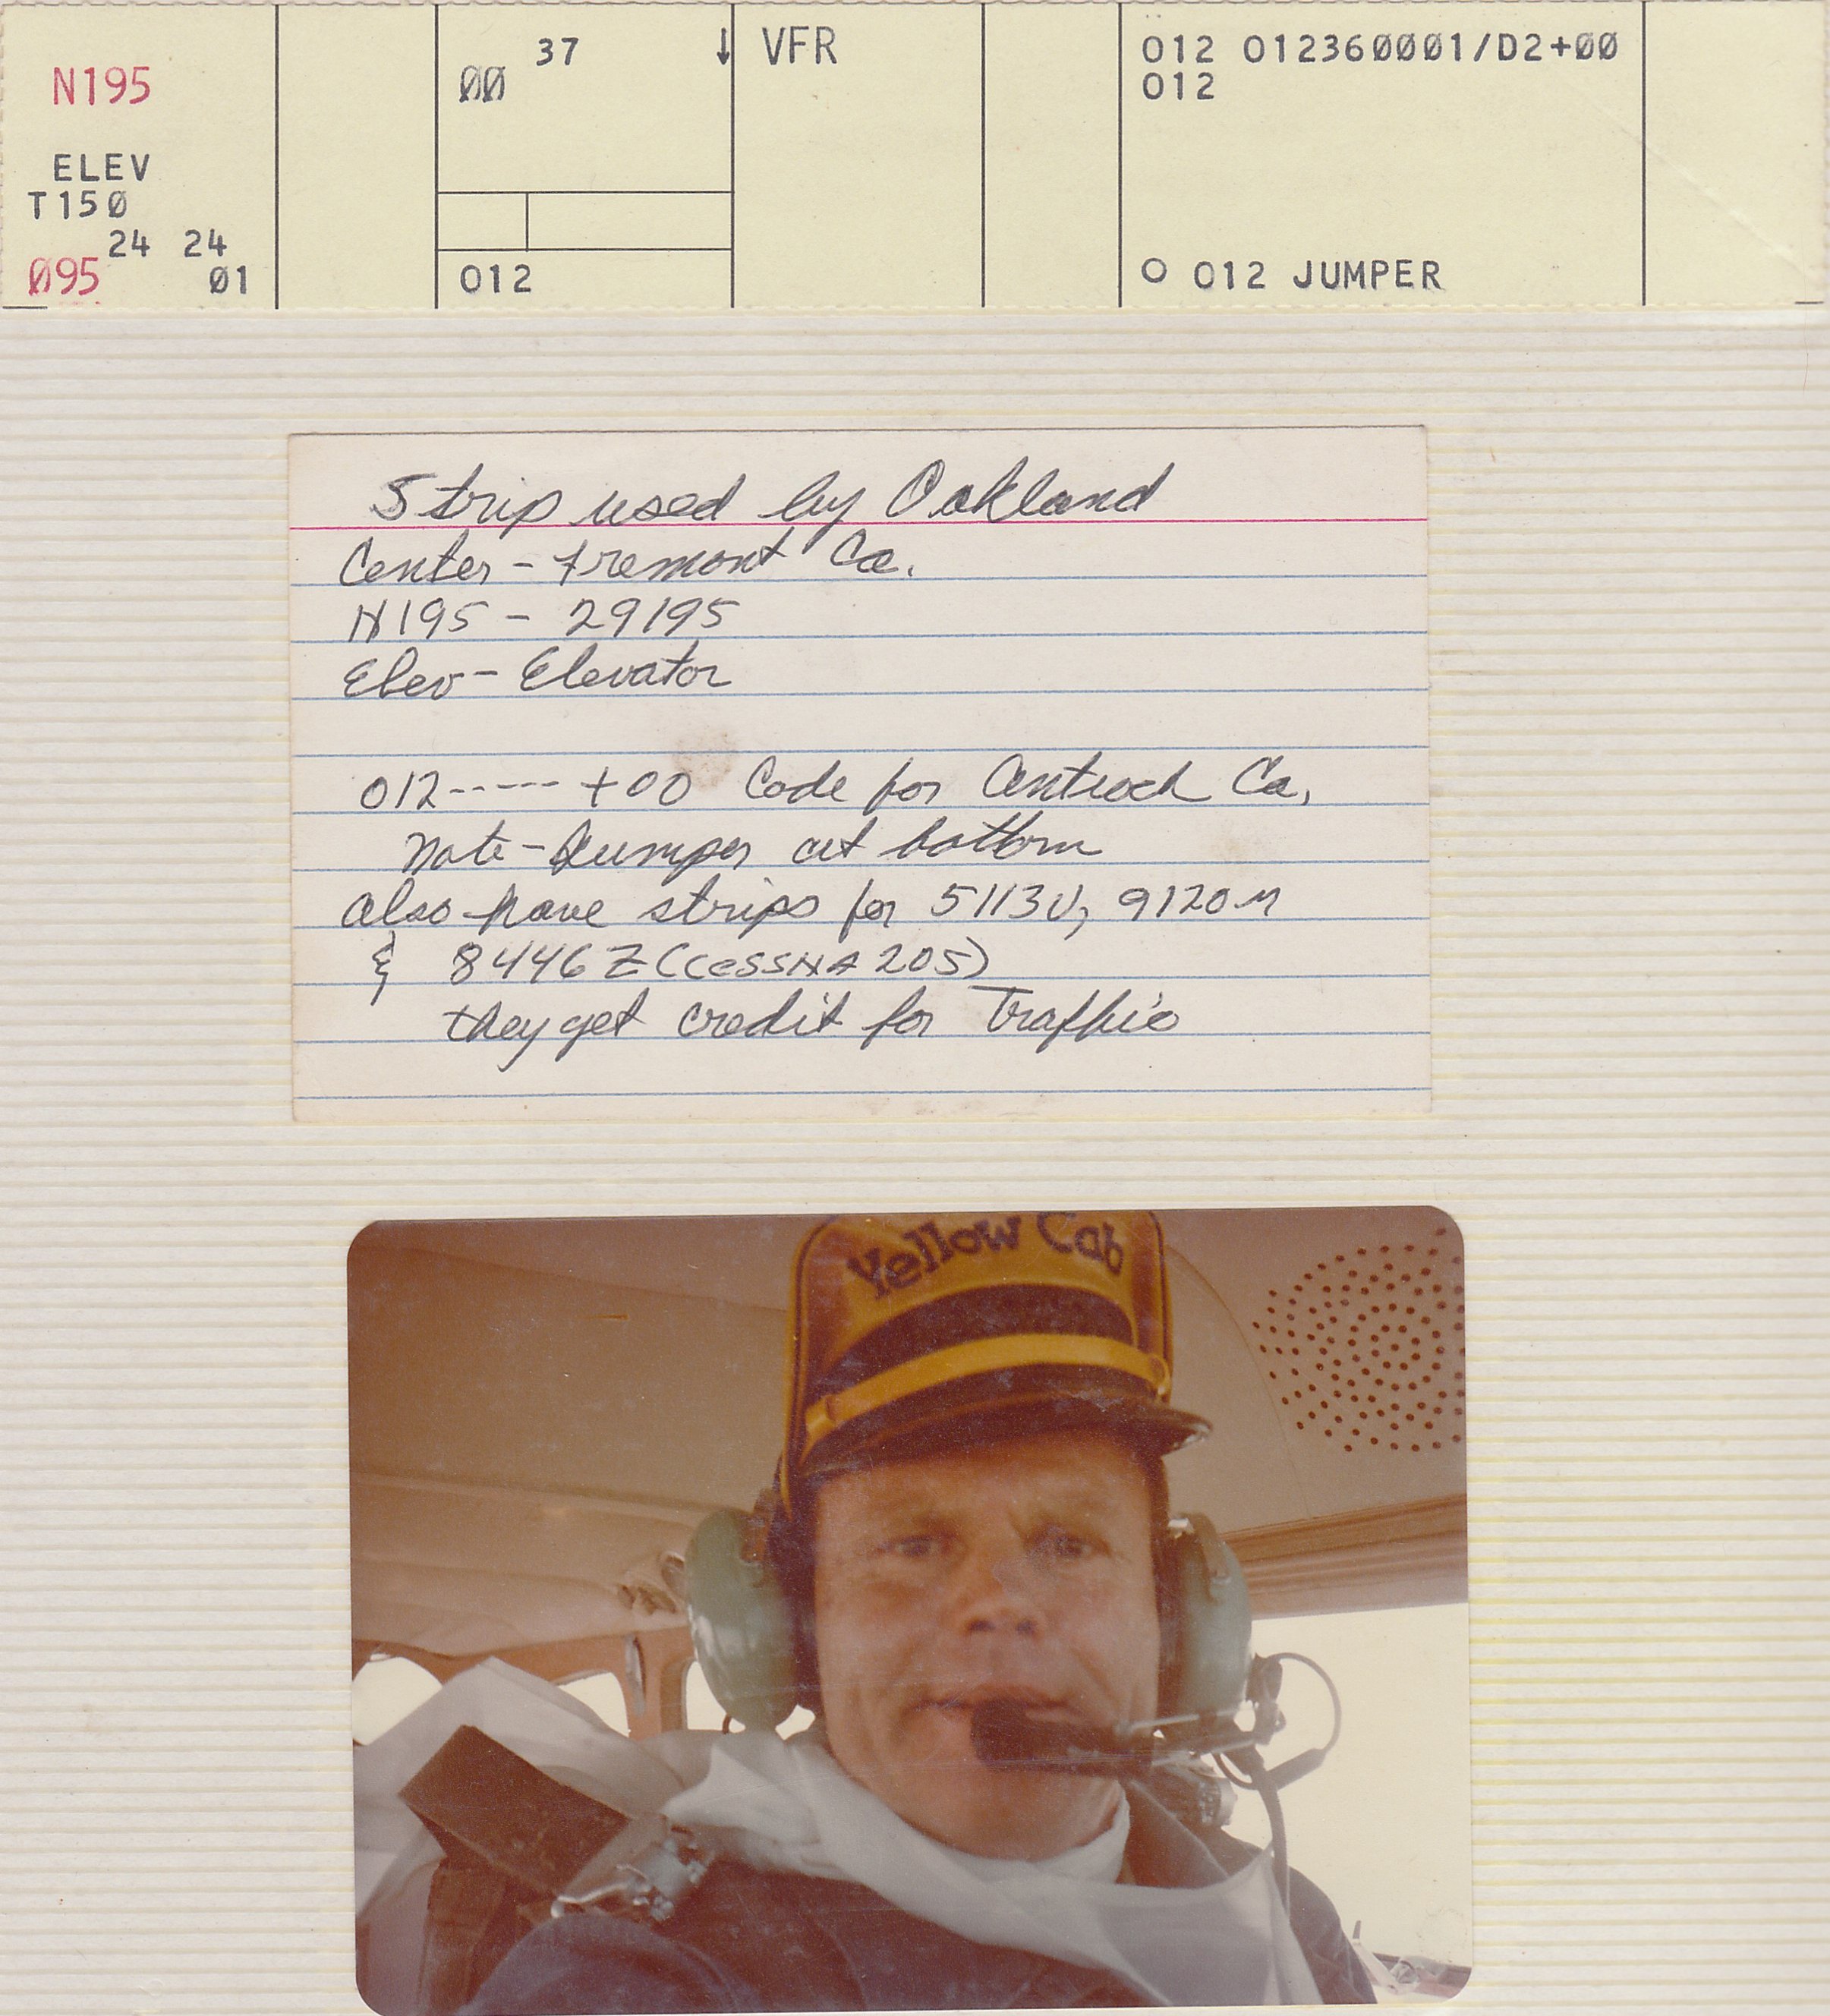 37 ↓ VFR O12 O1236ØØØ1/D2+ØØ
N195 ØØ O12
ELEV
T15Ø
24 24
Ø95 Ø1 O12 O O12 JUMPER
Strip used by Oakland
Center - Fremont Ca.
N195 - 29195
Elev - Elevator
012 ----- +00 Code for Antioch Ca,
Note - Jumper at bottom
also have strips for 5113U, 9120M
& 8446Z (Cessna 205)
they get credit for Traffic
Yellow Cab